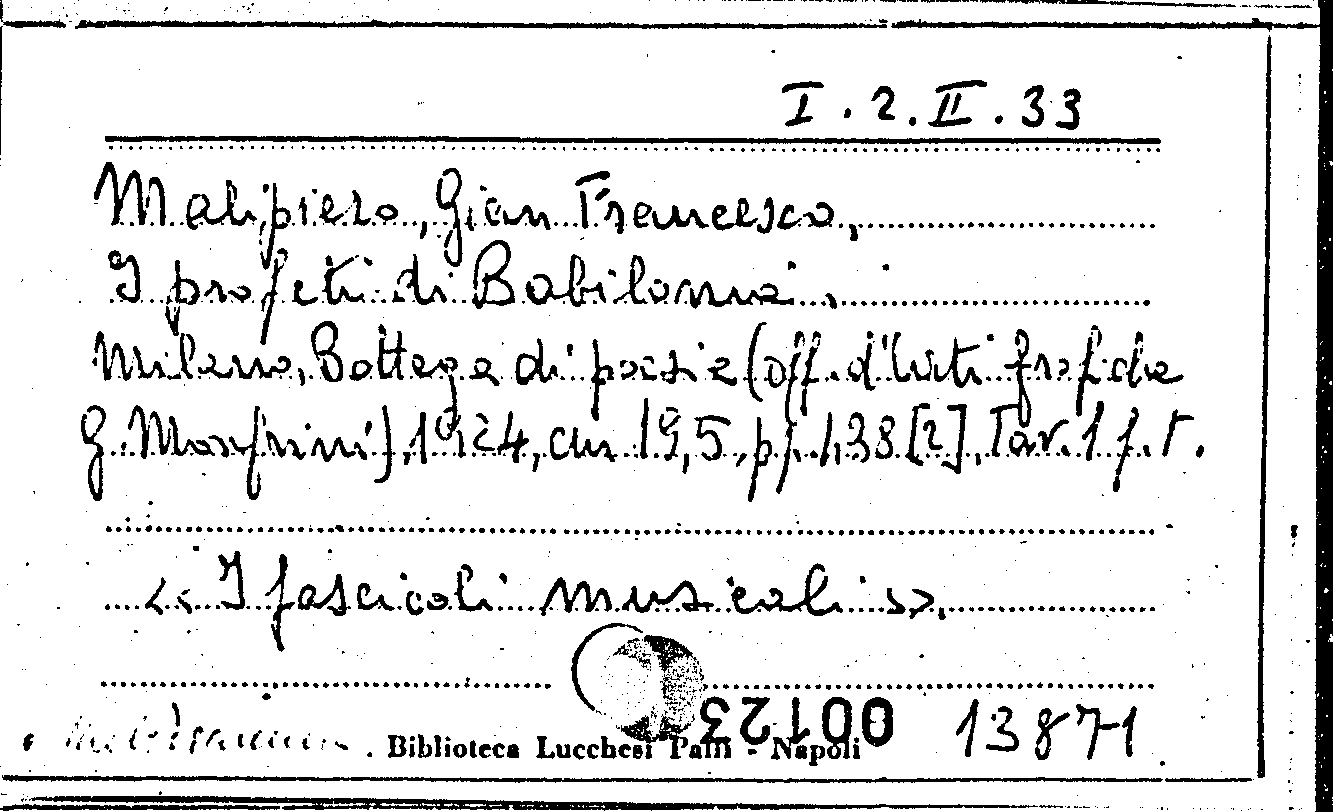 I.2.II.33
Malipiero, Gian Francesco,
I profeti di Babilonia.
Milano, Bottega di poesia (off. d'arti grafiche
G. Monfrini), 1924, cm 19,5, pp. 138 [2], Tav. 1 f.t.
«I fascicoli musicali».
00123 13871
Biblioteca Lucchesi Palli - Napoli